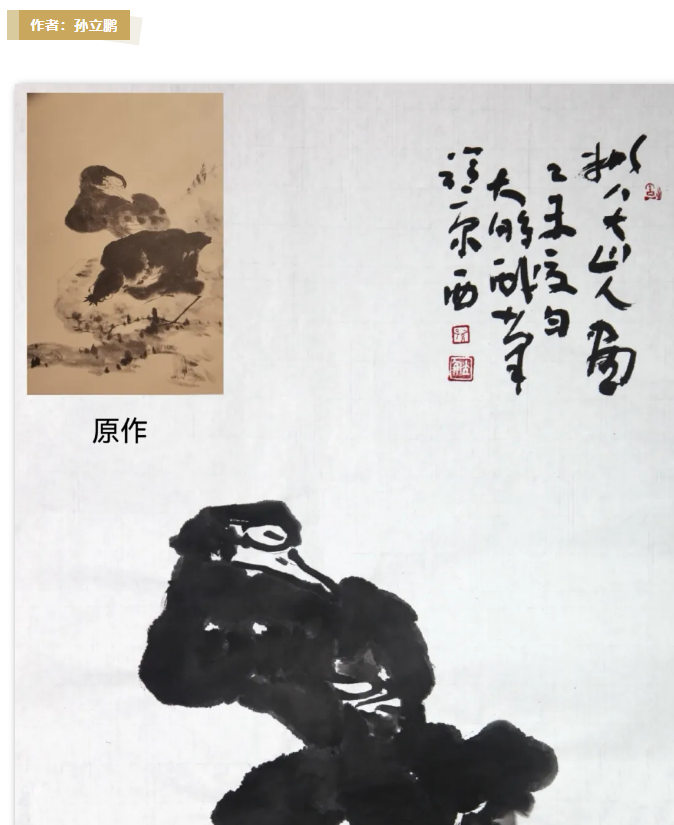 作者：孙立鹏
拟八大山人画
乙未夏日
大鹏醉笔
原作